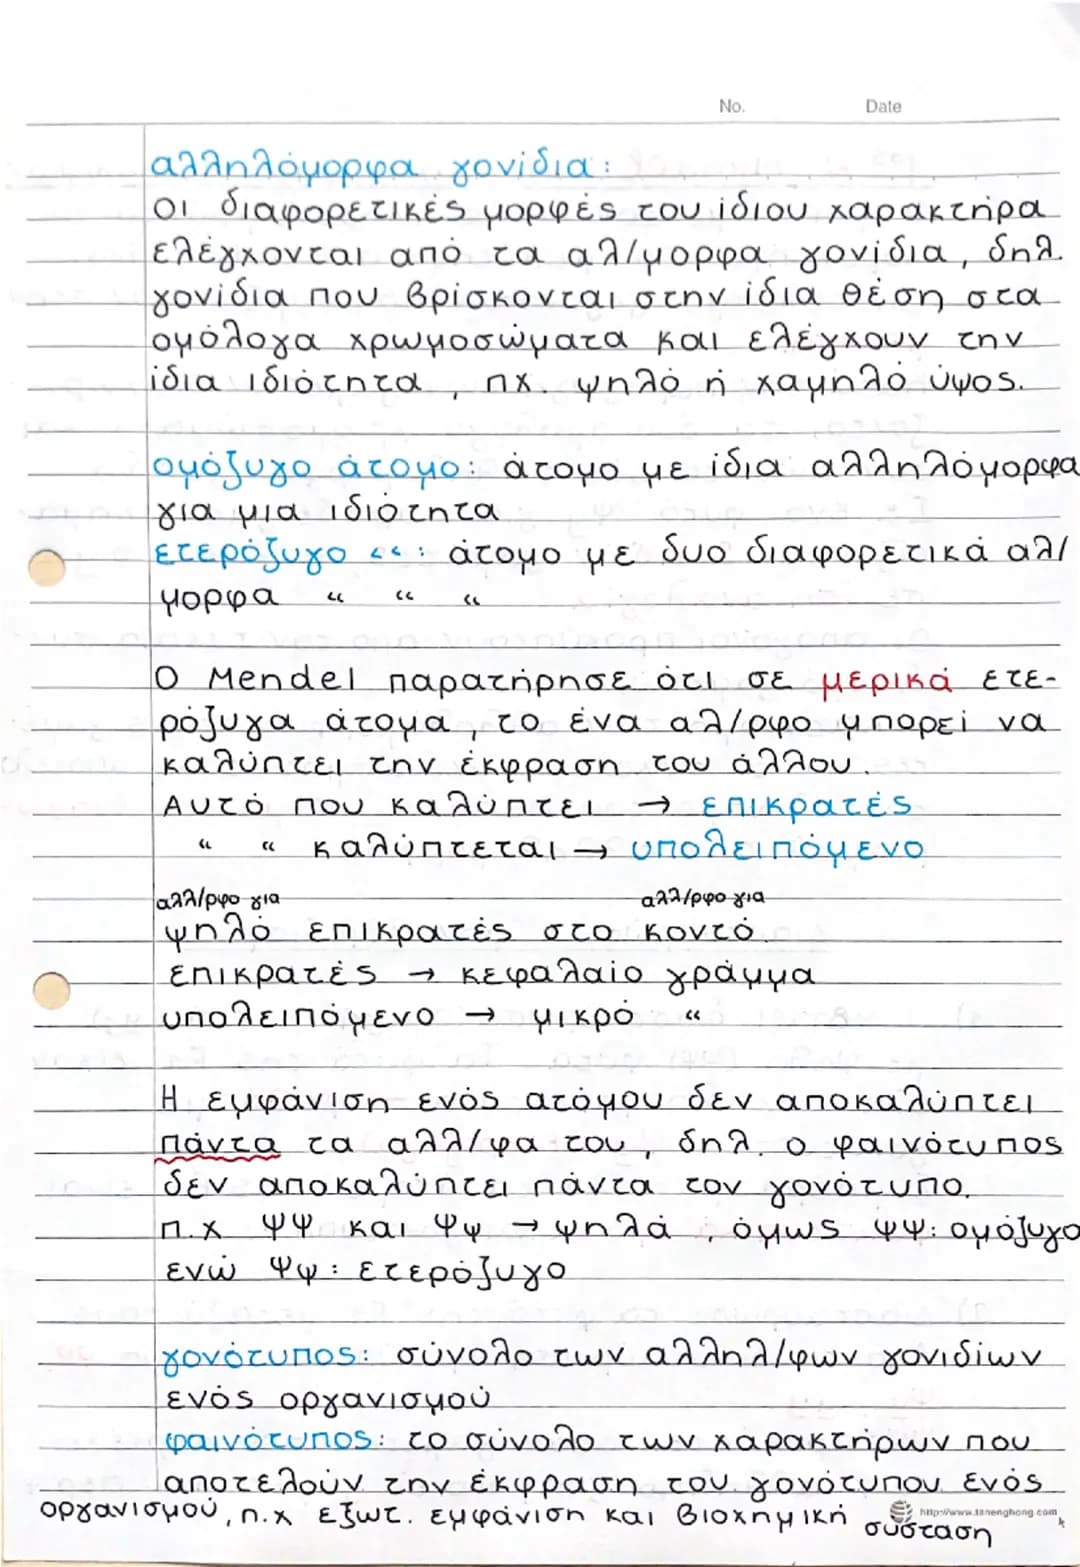 No. Date
αλληλόμορφα γονίδια:
Οι διαφορετικές μορφές του ίδιου χαρακτήρα
ελέγχονται από τα αλ/μορφα γονίδια, δηλ.
γονίδια που βρίσκονται στην ίδια θέση στα
ομόλογα χρωμοσώματα και ελέγχουν την
ίδια ιδιότητα, πχ. ψηλό ή χαμηλό ύψος.
ομόζυγο άτομο: άτομο με ίδια αλληλόμορφα
για μια ιδιότητα
ετερόζυγο “: άτομο με δυο διαφορετικά αλ/
μορφα “ “ “
Ο Mendel παρατήρησε ότι σε μερικά ετε-
ρόζυγα άτομα, το ένα αλ/ρφο μπορεί να
καλύπτει την έκφραση του άλλου.
Αυτό που καλύπτει → επικρατές
“ “ καλύπτεται → υπολειπόμενο
αλλ/ρφο για αλλ/ρφο για
ψηλό επικρατές στο κοντό
επικρατές → κεφαλαίο γράμμα
υπολειπόμενο → μικρό “
Η εμφάνιση ενός ατόμου δεν αποκαλύπτει
πάντα τα αλλ/φα του, δηλ. ο φαινότυπος
δεν αποκαλύπτει πάντα τον γονότυπο.
π.χ ΨΨ και Ψψ → ψηλά, όμως ΨΨ: ομόζυγο
ενώ Ψψ: ετερόζυγο
γονότυπος: σύνολο των αλληλ/φων γονιδίων
ενός οργανισμού
φαινότυπος: το σύνολο των χαρακτήρων που
αποτελούν την έκφραση του γονότυπου ενός
οργανισμού, π.χ εξωτ. εμφάνιση και βιοχημική σύσταση
http://www.tanenghong.com